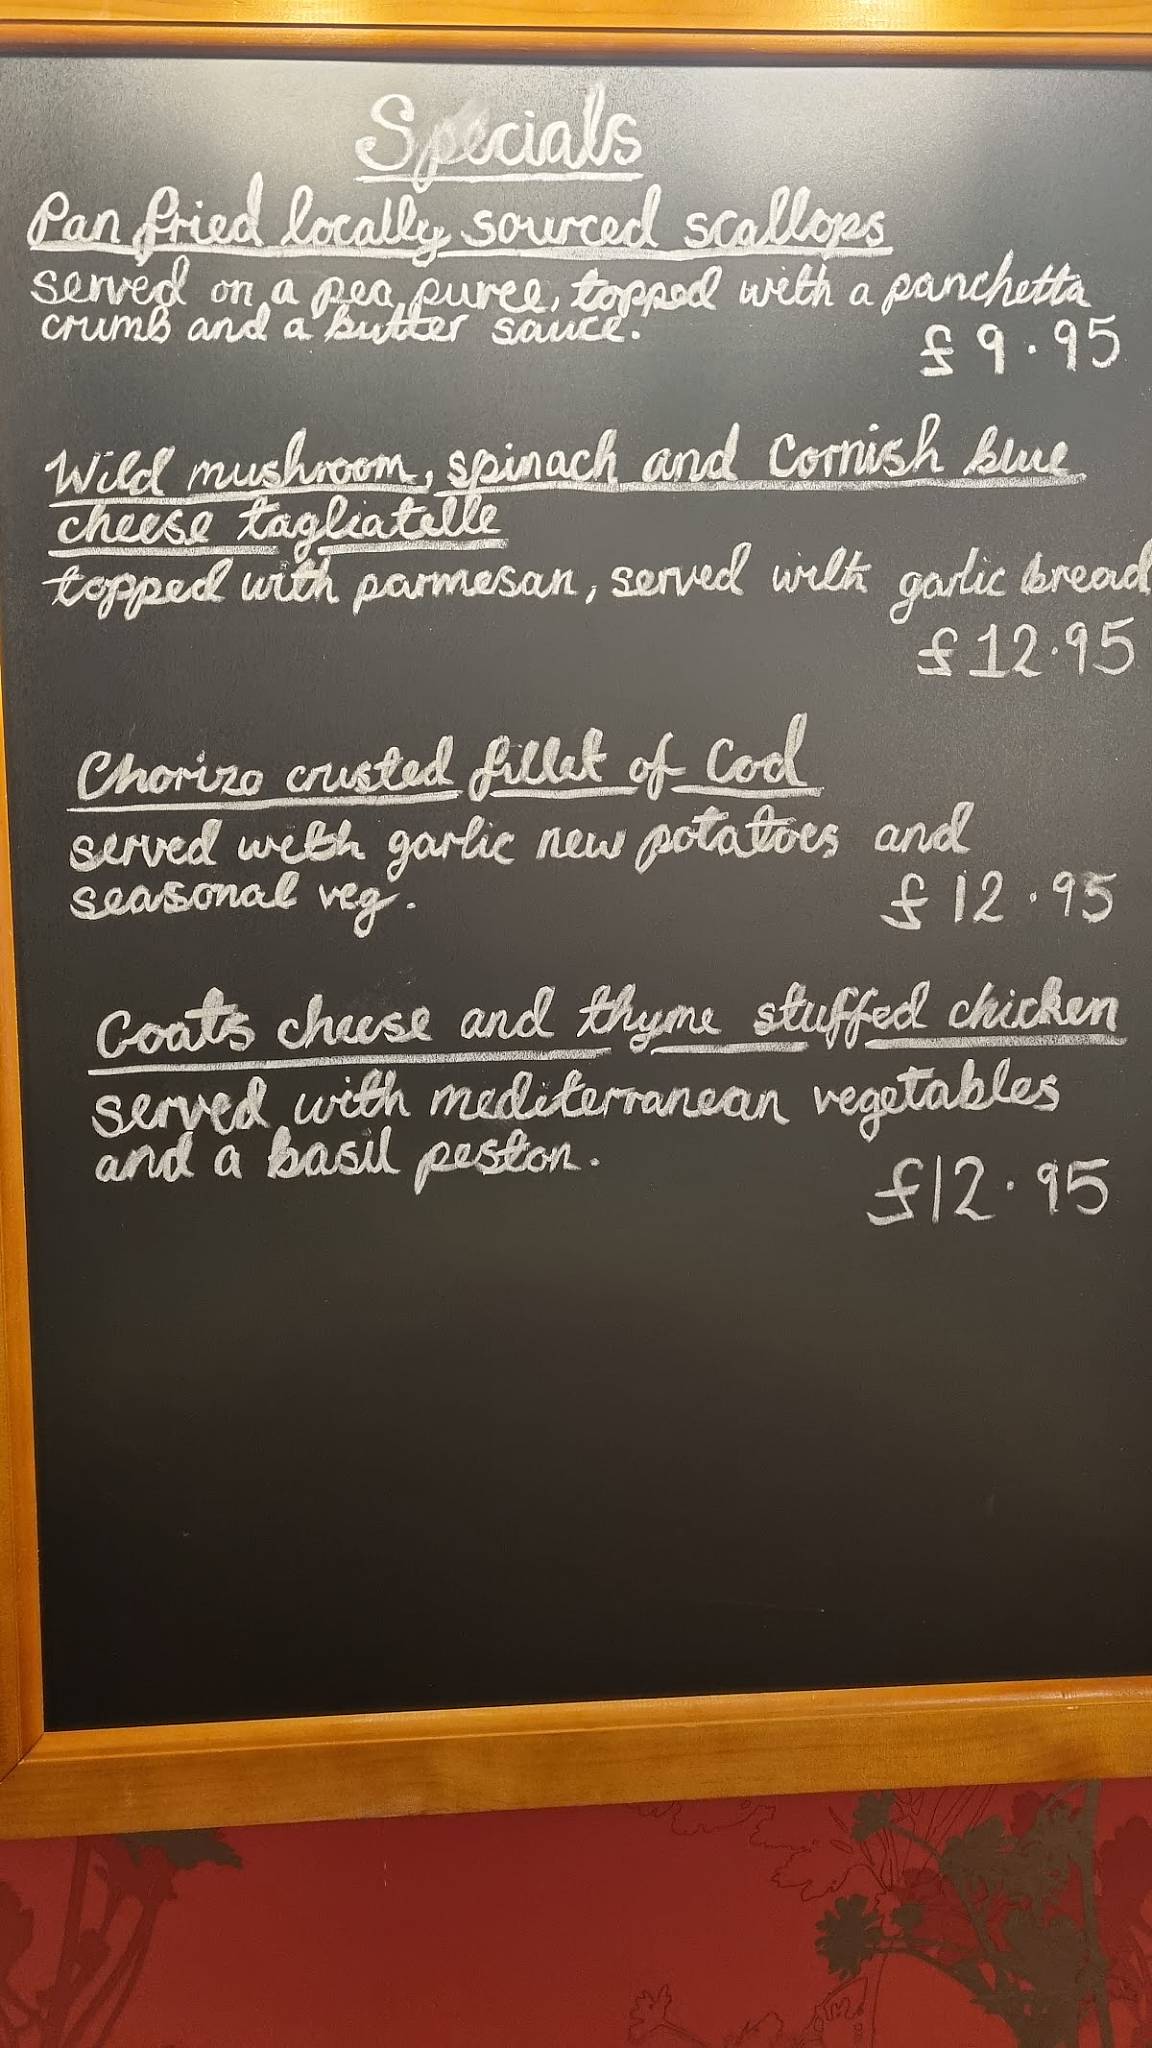 Specials
Pan fried locally sourced scallops
served on a pea puree, topped with a panchetta
crumb and a butter sauce.
£9.95
Wild mushroom, spinach and Cornish blue
cheese tagliatelle
topped with parmesan, served with garlic bread
£12.95
Chorizo crusted fillet of Cod
served with garlic new potatoes and
seasonal veg.
£12.95
Goats cheese and thyme stuffed chicken
served with mediterranean vegetables
and a basil peston.
£12.95